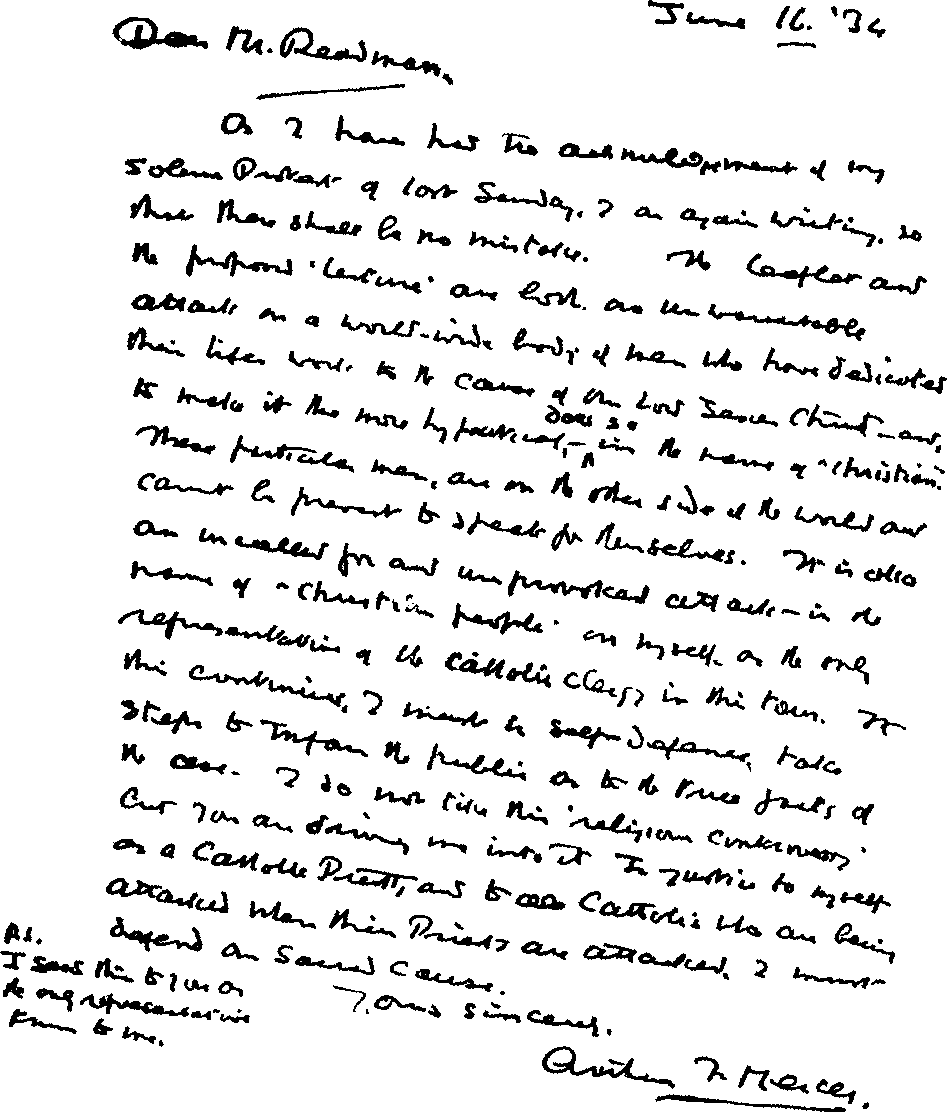 June 16. '34
Dear Mr. Readman,
As I have had the acknowledgement of my
Solemn Protest of last Sunday, I am again writing, so
that there shall be no mistake. The Leaflet and
the proposed 'Lecture' are both an unwarrantable
attack on a world-wide body of men who have dedicated
their lifes work to the cause of Our Lord Jesus Christ - and,
to make it the more hypocritical, - does so in the name of "Christian.
These particular men, are on the other side of the world and
cannot be present to speak for themselves. It is also
an uncalled for and unprovoked attack - in the
name of "Christian people" on myself as the only
representative of the Catholic clergy in this town. If
this continues, I must in self-defence, take
steps to inform the public as to the true facts of
the case. I do not like this 'religious controversy'
but you are driving me into it. In justice to myself
as a Catholic Priest, and to all Catholics who are being
attacked when their Priests are attacked, I must
defend our Sacred Cause.
Yours sincerely,
Arthur F. Mercer.
P.S.
I send this to you as
the only representative
known to me.